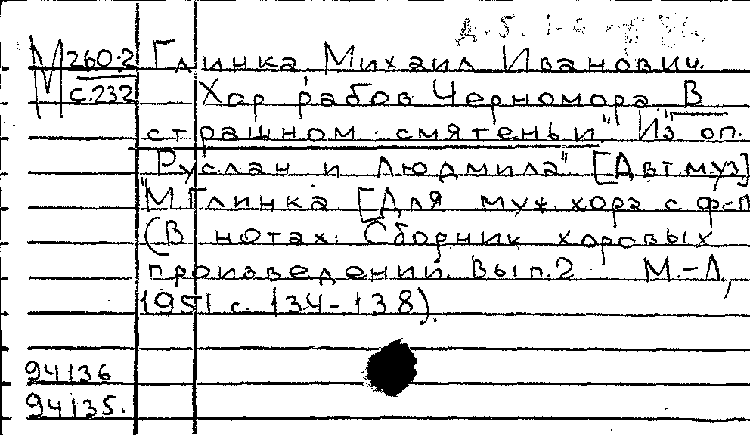 М 260-2 Глинка Михаил Иванович
с.232 Хор рабов Черномора "В
страшном смятеньи" Из оп.
"Руслан и Людмила" [Авт муз]
М.Глинка [Для муж. хора с ф-п
(В нотах: Сборник хоровых
произведений. Вып.2 М.-Л,
1951 с. 134-138).
94136
94135.